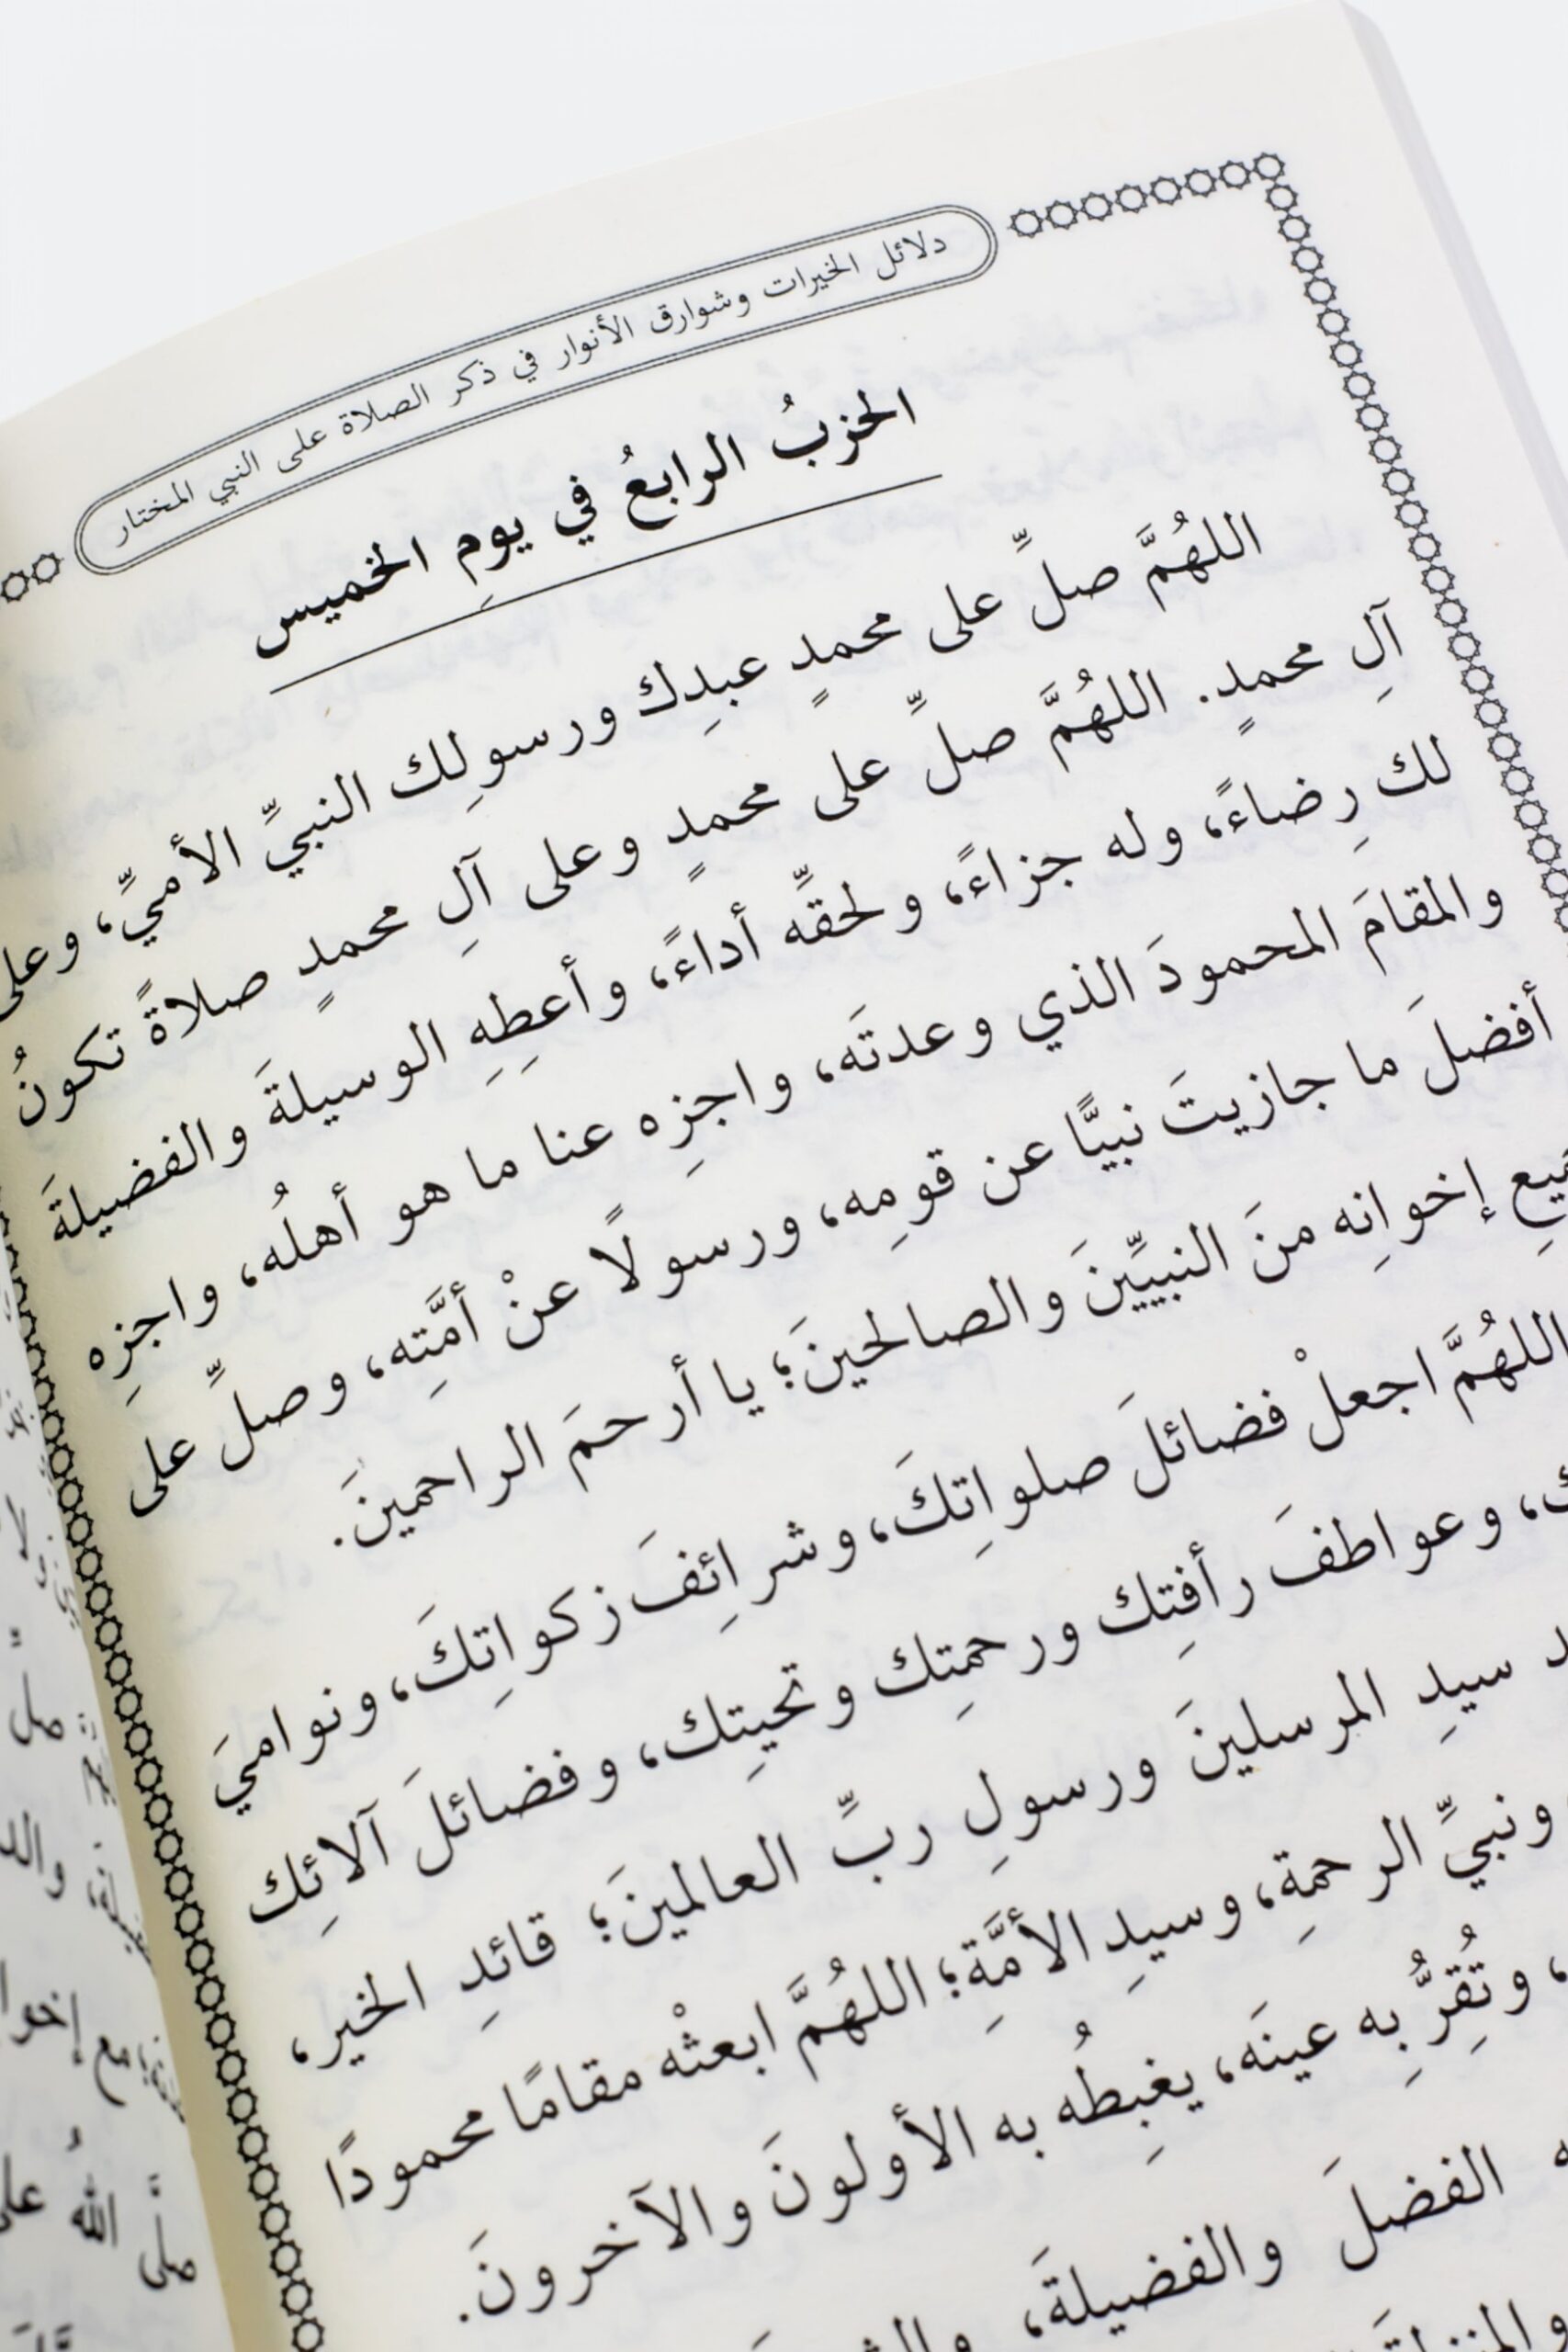 دلائل الخيرات وشوارق الأنوار في ذكر الصلاة على النبي المختار
الحزبُ الرابعُ في يومِ الخميس
اللهُمَّ صلِّ على محمدٍ عبدِك ورسولِك النبيِّ الأميِّ، وعلى
آلِ محمدٍ. اللهُمَّ صلِّ على محمدٍ وعلى آلِ محمدٍ صلاةً تكونُ
لك رِضاءً، وله جزاءً، ولحقِّه أداءً، وأعطِهِ الوسيلةَ والفضيلةَ
والمقامَ المحمودَ الذي وعدتَه، واجزِه عنا ما هو أهلُه، واجزِه
أفضلَ ما جازيتَ نبيًّا عن قومِه، ورسولًا عنْ أمَّتِه، وصلِّ على
إخوانِه منَ النبيِّينَ والصالحينَ؛ يا أرحمَ الراحمينَ.
اللهُمَّ اجعلْ فضائلَ صلواتِكَ، وشرائِفَ زكواتِكَ، ونواميَ
وعواطفَ رأفتِك ورحمتِك وتحيتِك، وفضائلَ آلائِك
سيدِ المرسلينَ ورسولِ ربِّ العالمينَ؛ قائدِ الخير،
ونبيِّ الرحمةِ، وسيدِ الأمَّةِ؛ اللهُمَّ ابعثْه مقامًا محمودًا
وتُقِرُّ بِه عينَه، يغبِطُه به الأولونَ والآخرونَ.
الفضلَ والفضيلةَ،